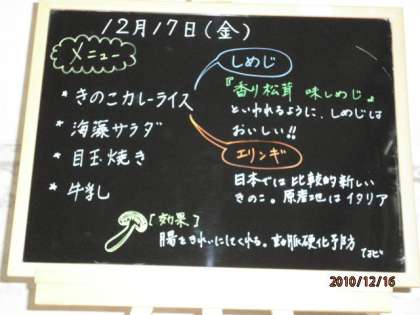 12月17日(金)
メニュー
* きのこカレーライス
* 海藻サラダ
* 目玉焼き
* 牛乳
しめじ
『香り松茸 味しめじ』
といわれるように、しめじは
おいしい!!
エリンギ
日本では比較的新しい
きのこ。原産地はイタリア
[効果]
腸をきれいにしてくれる。動脈硬化予防
など
2010/12/16